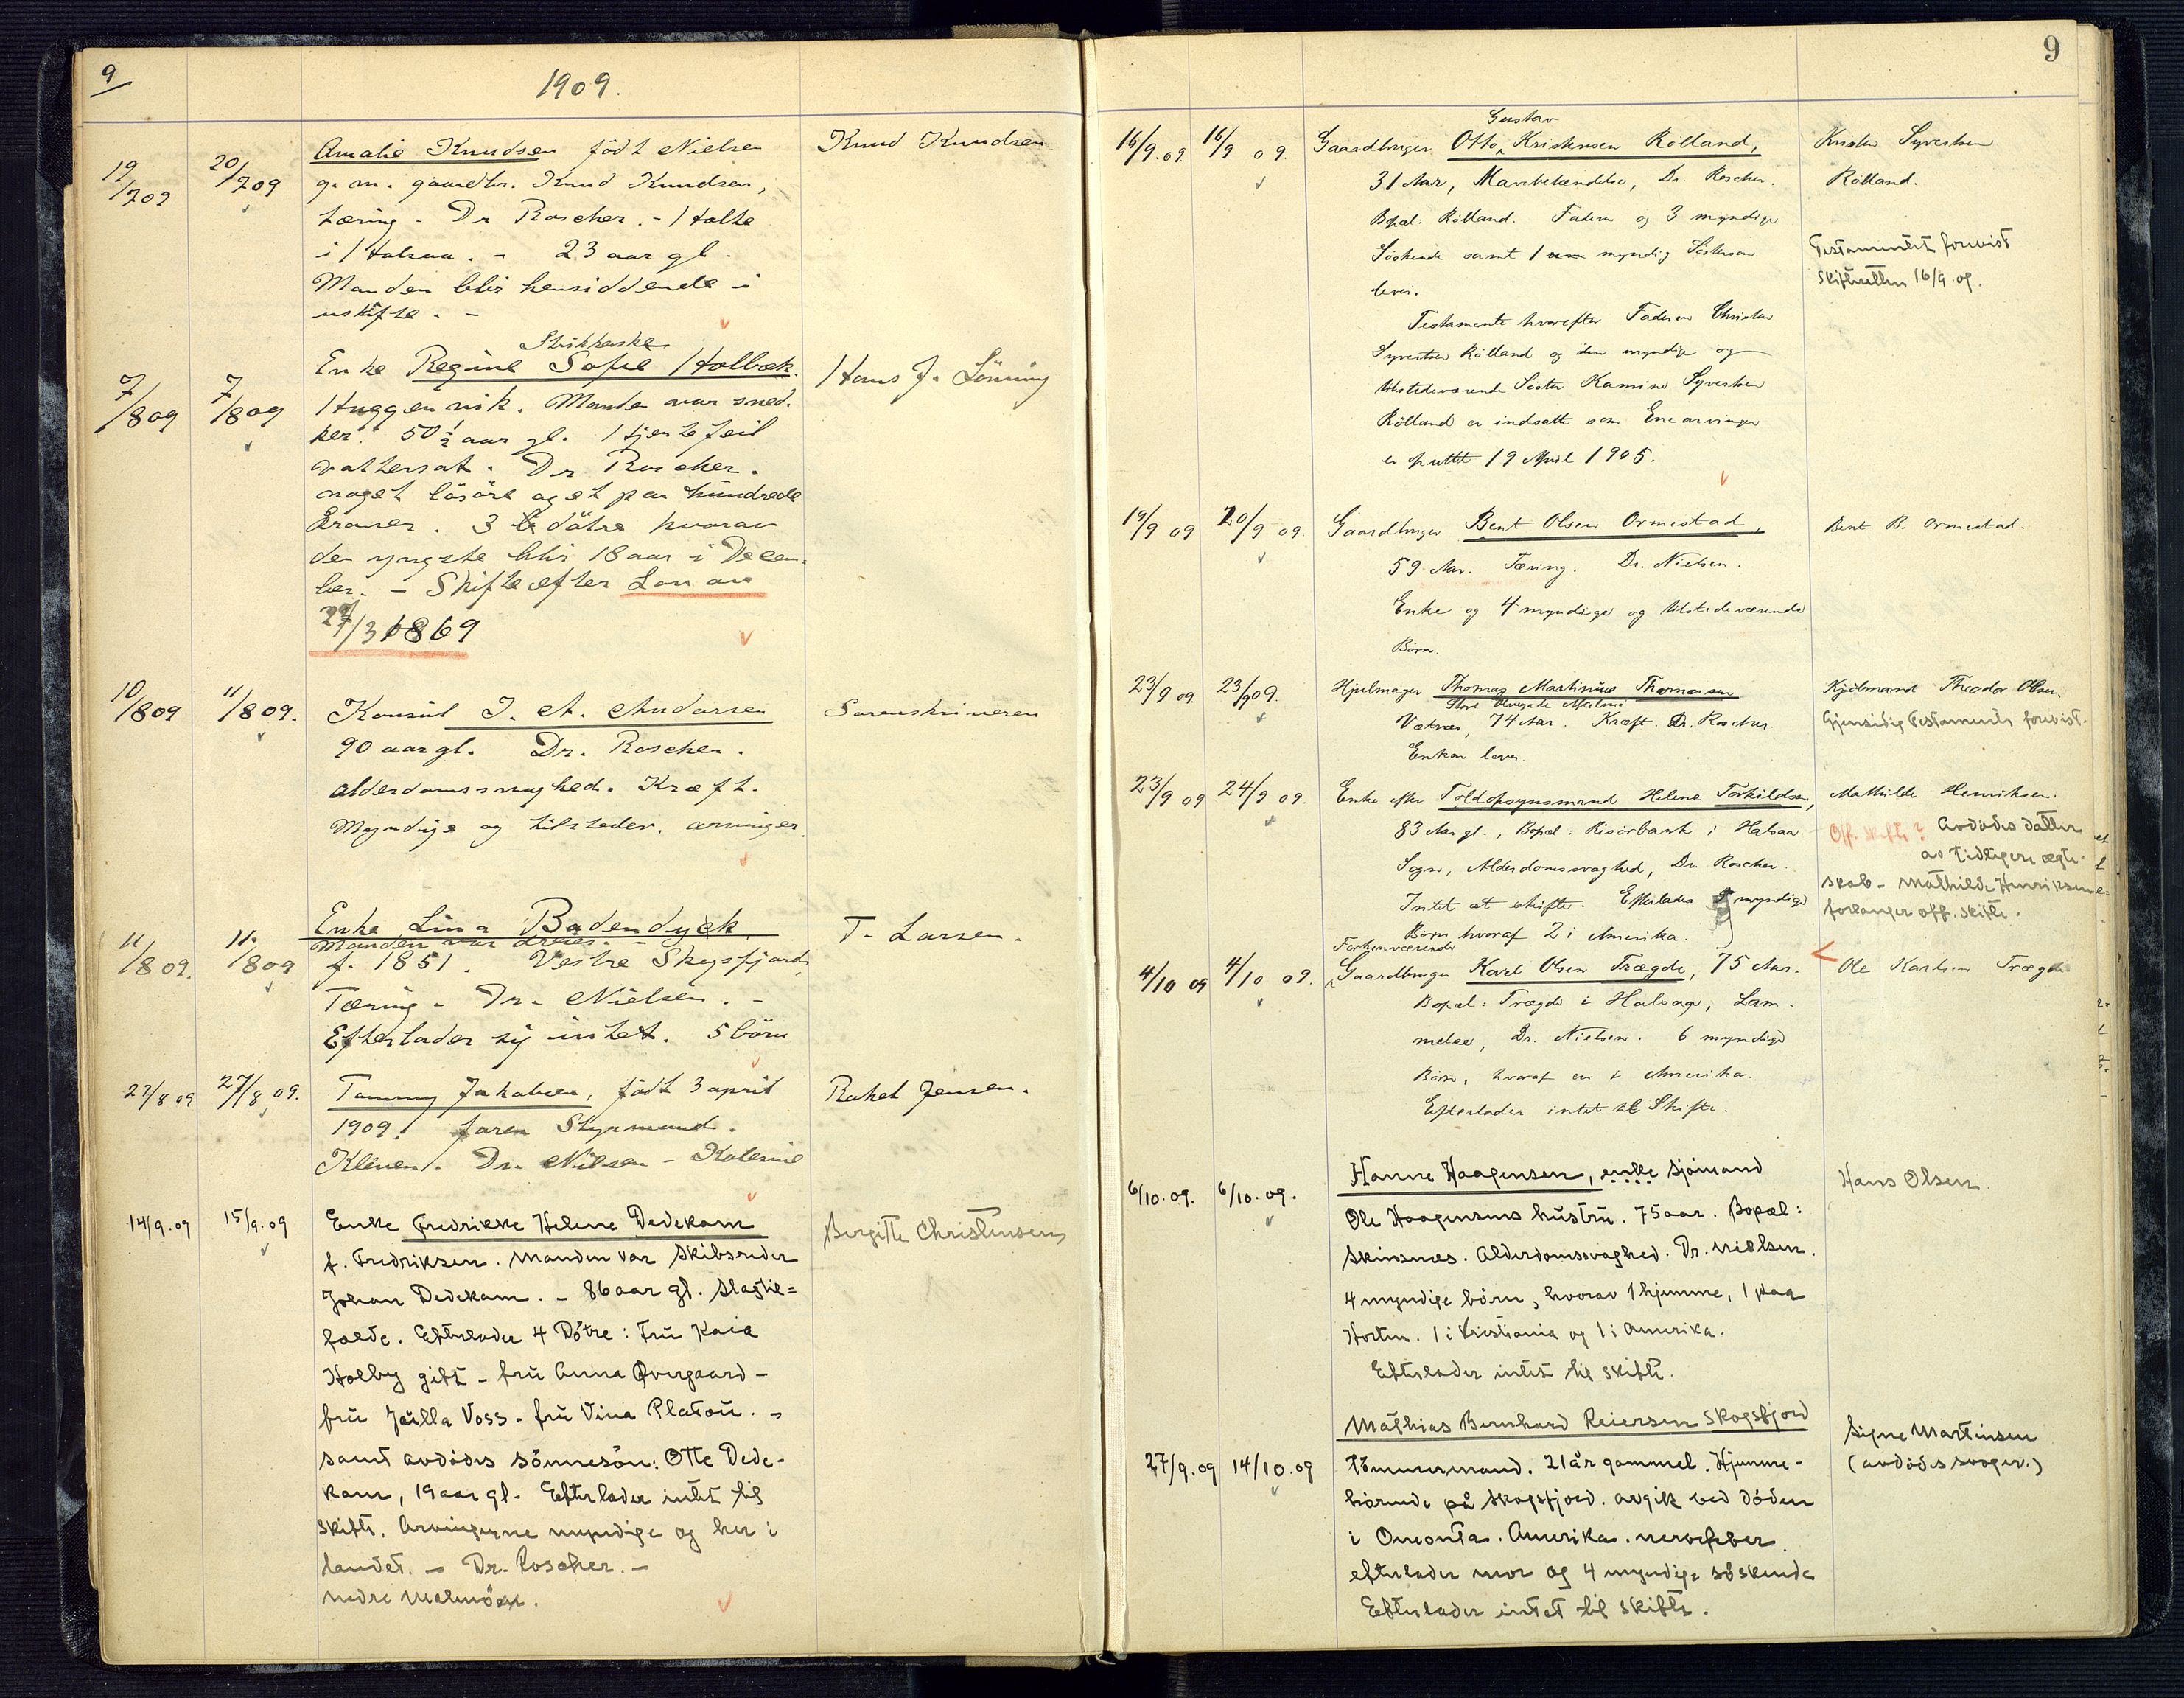 9
1909.
19/7 09 20/7 09 Amalie Knudsen födt Nielsen Knud Knudsen
g. m. gaardbr. Knud Knudsen,
tæring - Dr Roscher. - Holte
i Halsaa. - 23 aar gl.
Manden blir hensiddende i
uskifte. -
Strikkerske
7/8 09 7/8 09 Enke Regine Sofie Holbæk. Hans J. Lönning
Huggenvik. Manden var sned.
ker. 50½ aar gl. Hjertefeil
vattersot. Dr Roscher.
noget lösöre og et par hundrede
kroner. 3 dötre hvorav
den yngste blir 18 aar i Decem-
ber. - Skifte efter Lov av
1869
10/8 09 11/8 09. Konsul J. A. Andorsen Sorenskriveren
90 aar gl. Dr. Roscher.
alderdomssvaghed. Kræft.
Myndige og tilsteder. arvinger.
11/8 09. 11/8 09 Enke Lina Badendyck T. Larsen.
Manden var dreier. -
f. 1851. Vestre Skogsfjord
Tæring - Dr. Nielsen. -
Efterlader sig intet. 5 börn
27/8 09 27/8 09. Tommy Jakobsen, födt 3 april Rakel Jensen.
1909. faren Styrmand.
Kleven. Dr. Nilsen - Kolerine
14/9.09 15/9.09 Enke Fredrikke Helene Dedekam Bergitte Christensen
f. Fredriksen. Manden var skibsreder
Johan Dedekam. - 86 aar gl. slagtil=
fælde. Efterlader 4 Dötre: Fru Kaia
Holby gift - fru Anna Øvergaard -
fru Julla Voss - fru Vina Platou. -
samt avdödes sönnesön: Otto Dede-
kam, 19 aar gl. Efterlader intet til
skifte. Arvingerne myndige og her i
landet. - Dr. Roscher. -
nedre Malmöen.
9
Gustav
16/9.09 16/9 09. Gaardbruger Otto Kristensen Rölland, Krister Syvertsen
31 Aar, Mavebetændelse, Dr. Roscher. Rölland.
Bopæl: Rölland. Faderen og 3 myndige
Söskende samt 1 myndig Söstersön Testamentet forevist
lever. Skifteretten 16/9.09.
Testamente hvorefter Faderen Christen
Syvertsen Rölland og den myndige og
tilstedeværende Söster Kamine Syvertsen
Rölland er indsatte som Enearvinger
er oprettet 19 April 1905.
19/9 09 20/9 09. Gaardbruger Bent Olsen Ormestad, Bent B. Ormestad.
59 Aar. Tæring. Dr. Nielsen.
Enke og 4 myndige og tilstedeværende
Börn.
23/9 09 23/9 09. Hjulmager Thomas Martinius Thomassen Kjölmand Theodor Olsen.
Vatnes, 74 Aar. Kræft. Dr. Roscher. Gjensidig Testamente forevist.
Enken lever.
23/9 09 24/9 09. Enke efter Toldopsynsmand Helene Torkildsen, Mathilde Henriksen.
83 Aar gl., Bopæl: Risörbank i Halsaa Off. skifte? Avdödes datter
Sogn, Alderdomssvaghed, Dr. Roscher. av tidligere ægte-
Intet at skifte. Efterlader 5 myndige skab - Mathilde Henriksen
Börn hvoraf 2 i Amerika. forlanger off. skifte.
Forhenværende
4/10 09 4/10 09. Gaardbruger Karl Olsen Trægde, 75 Aar. Ole Karlsen Trægde
Bopæl: Trægde i Halsaa, Lam-
melse, Dr. Nielsen. 6 myndige
Börn, hvoraf en i Amerika.
Efterlader intet til Skifte.
6/10.09. 6/10.09. Hanne Haagensen, enke sjömand Hans Olsen
Ole Haagensens hustru. 75 aar. Bopæl:
Skinsnes. Alderdomssvaghed. Dr. Nielsen.
4 myndige börn, hvorav 1 hjemme, 1 paa
Horten. 1 i Kristiania og 1 i Amerika.
Efterlader intet til skifte.
Mathias Bernhard Reiersen Skogsfjord Signe Martinsen
27/9.09 14/10.09 tömmermand. 21 år gammel. Hjemme- (avdödes svoger.)
hörende på Skogsfjord. avgik ved döden
i Oneonta. Amerika. nervefeber.
efterlader mor og 4 myndige söskende
Efterlader intet til skifte.